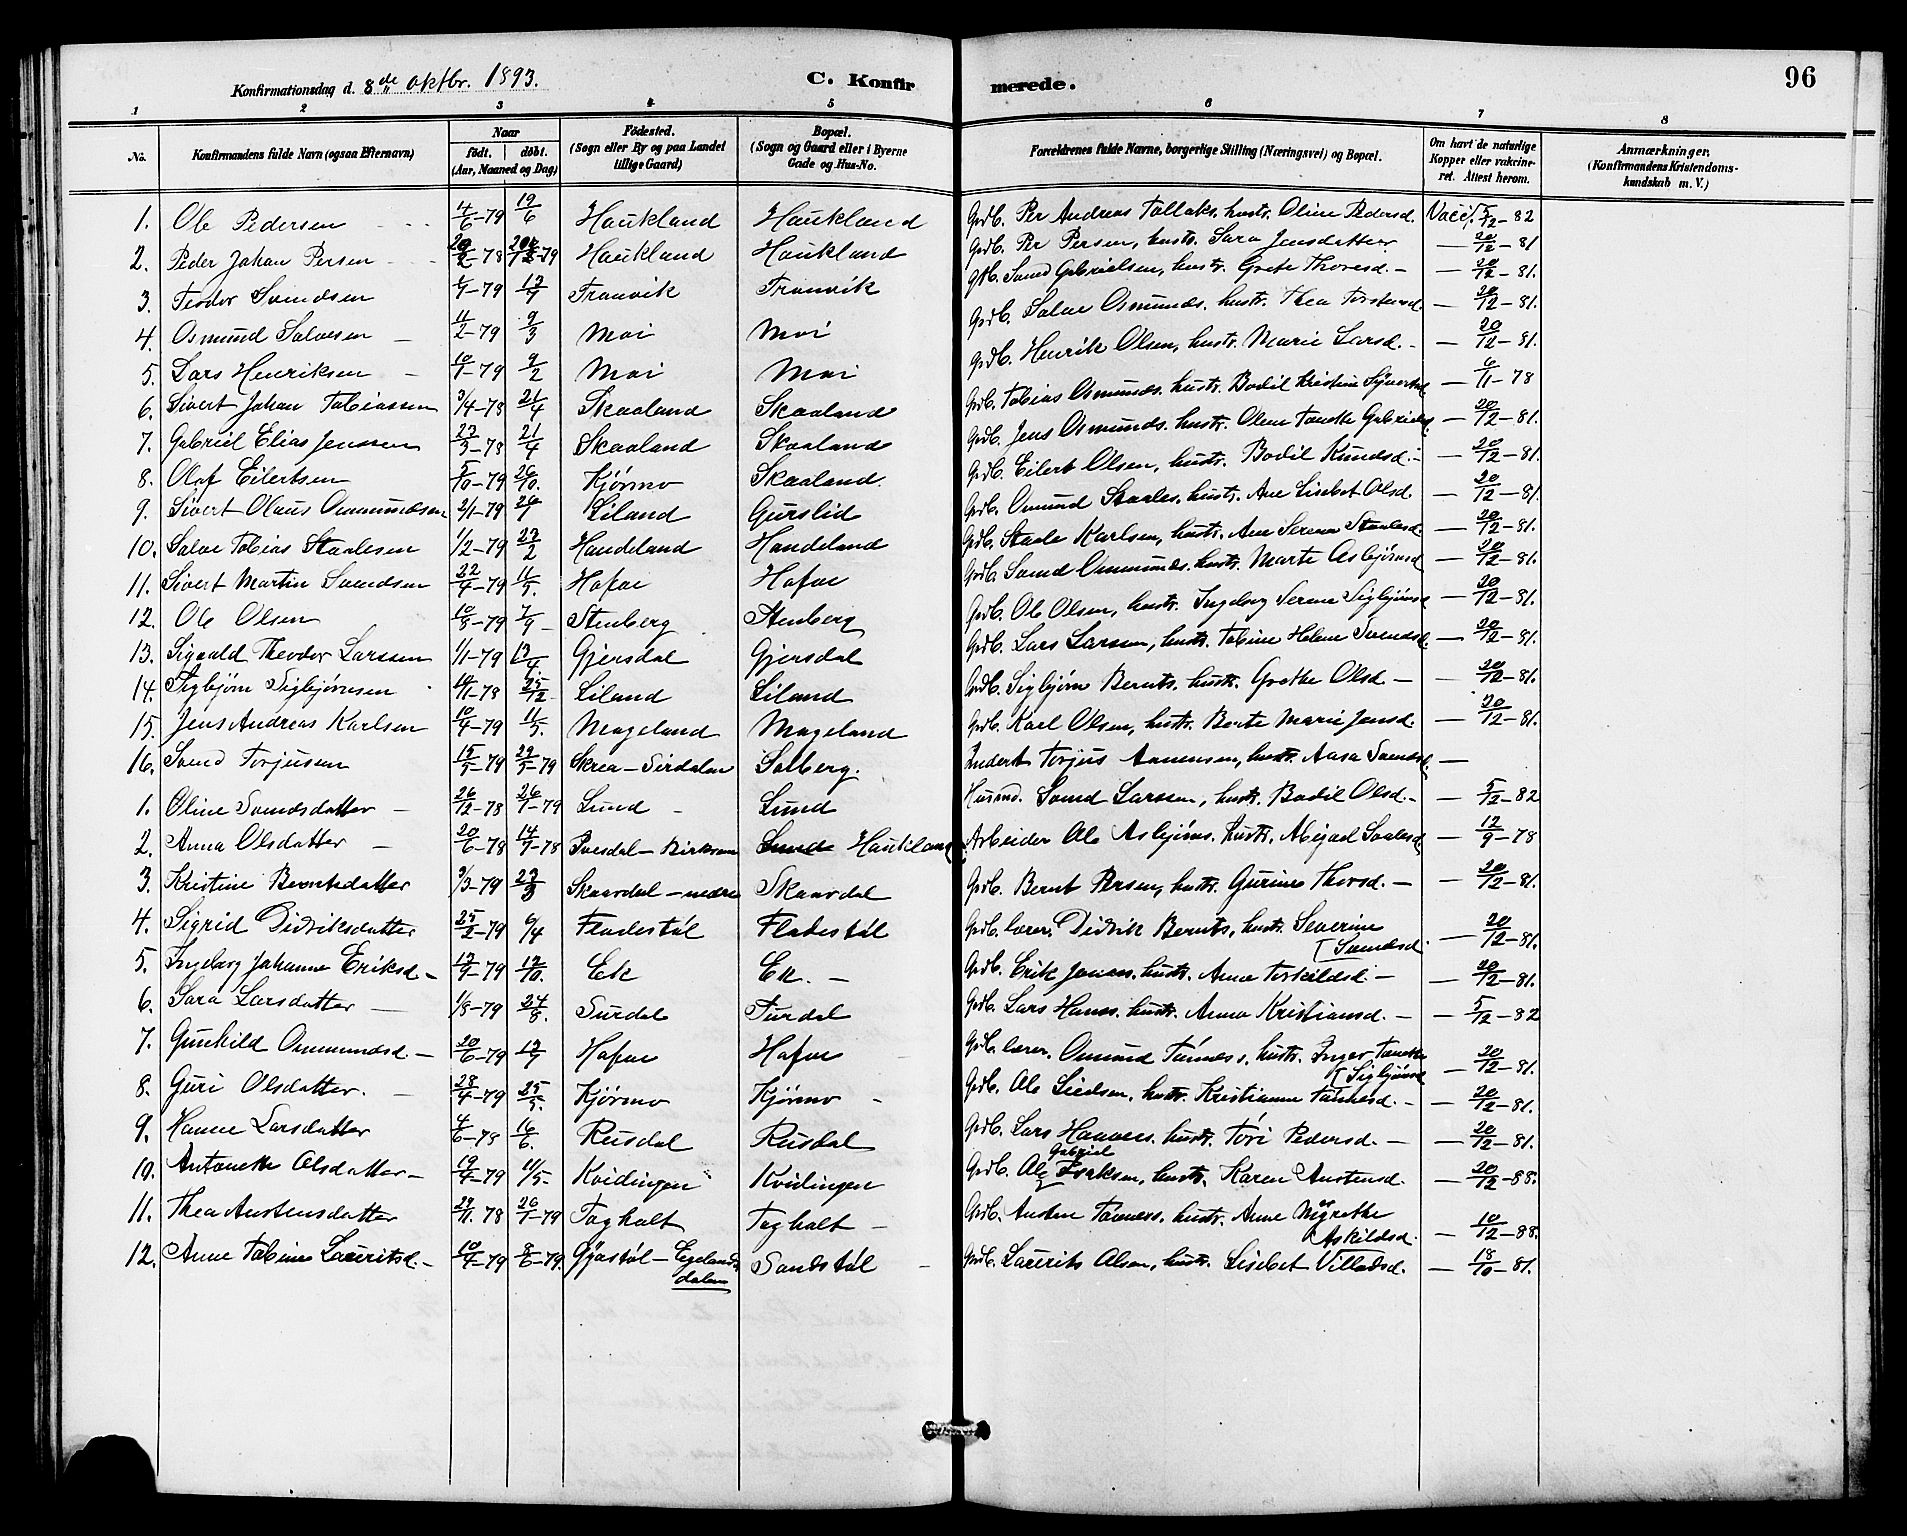 Konfirmationsdag d. 8de oktbr. 1893.
C. Konfir merede. 96
1 2 3 4 5 6 7 8
No. Konfirmandens fulde Navn (ogsaa Efternavn) Naar født. døbt. (Aar, Maaned og Dag) Födested. (Sogn eller By og paa Landet tillige Gaard) Bopæl. (Sogn og Gaard eller i Byerne Gade og Hus-No. Forældrenes fulde Navne, borgerlige Stilling (Næringsvei) og Bopæl. Om havt de naturlige Kopper eller vakcineret. Attest herom. Anmærkninger, (Konfirmandens Kristendomskundskab m. V.)
1. Ole Pedersen 4/6-79 19/6 Haukland Haukland Grdb. Per Andreas Tollaks. hustr. Oline Pedersd. Vacc. 5/12-82
2. Peder Johan Persen Haukland Haukland Grdb. Per Persen, hustr. Sara Jensdatter — 20/12-81
3. Teodor Svendsen Tranvik Tranvik Grdb. Svend Gabrielsen, hustr. Grete Thoresd. — 20/12-81.
4. Osmund Salvesen 11/2-79 9/3 Moi Moi Grdb. Salve Osmunds. hustr. Thea Torstensd. — 20/12-81.
5. Lars Henriksen 10/1-79 9/2 Moi Moi Grdb. Henrik Olsen, hustr. Marie Larsd. — 20/12-81.
6. Sivert Johan Tobiassen 3/4-78 21/4 Skaaland Skaaland Grdb. Tobias Osmunds. hustr. Bodil Kristine Syvertsd — 6/11-78
7. Gabriel Elias Jenssen 23/3-78 21/4 Skaaland Skaaland Grdb. Jens Osmunds. hustr. Olene Tonette Gabrielsd. — 20/12-81.
8. Olaf Eilertsen 5/10-79 26/10. Kjørmo Skaaland. Grdb. Eilert Olsen, hustr. Bodil Knudsd. — 20/12-81.
9. Sivert Olaus Ommundsen 2/1-79 26/1 Liland Gurslid Grdb. Omund Staales. hustr. Ane Lisebet Olsd. — 20/12-81.
10. Salve Tobias Staalesen 1/2-79 23/2 Handeland Handeland Grdb. Staale Karlsen, hustr. Ane Serena Staalesd. — 20/12-81.
11. Sivert Martin Svendsen 22/4-79 11/5. Hafoe Hafoe Grdb. Svend Ommunds. hustr. Marte Asbjørnsd — 20/12-81.
12. Ole Olsen 10/8-79 7/9 Stenberg Stenberg Grdb. Ole Olsen, hustr. Ingeborg Serene Sigbjørnsd — 20/12-81.
13. Sigvald Theodor Larssen 1/1-79 13/4 Gjersdal Gjersdal Grdb. Lars Larsen, hustr. Tobine Helene Svendsd. — 20/12-81.
14. Sigbjørn Sigbjørnsen 10/11-78 25/12. Liland Liland Grdb. Sigbjørn Bernts. hustr. Grethe Olsd. — 20/12-81.
15. Jens Andreas Karlsen 10/4-79 11/5. Mageland Mageland Grdb. Karl Olsen, hustr. Berte Marie Jensd. — 20/12-81.
16. Svend Torjusen 15/5-79 29/5-79 Skrea - Sirdalen Solberg. Inderst Torjus Aanensen, hustr. Aasa Svendsd. —
1. Oline Svendsdatter 26/12-78 26/1-79 Lund Lund Husmd. Svend Larssen, hustr. Bodil Olsd. — 5/12-82
2. Anna Olsdatter 20/6-78 14/7-78 Ivesdal - Birkrem Lund Haukland Arbeider Ole Asbjørns. hustr. Abigael — 12/9-78
3. Kristine Berntsdatter 3/3-79 23/3 Skaardal - nedre Skaardal Grdb. Bernt Persen, hustr. Gurine Thorsd. — 20/12-81.
4. Sigrid Didriksdatter 25/2-79 6/4 Fladestøl Fladestøl Grdb. lærer. Didrik Bernts, hustr. Severine
[Svendsd. — 20/12-81.
5. Ingeborg Johanne Eriksd. 13/9-79 12/10. Eik Eik. Grdb. Erik Jonass. hustr. Anna Torkildsd. — 20/12-81.
6. Sara Larsdatter 1/8-79 24/8. Surdal Surdal Grdb. Lars Hanss. hustr. Anna Kristiansd. — 5/12-82
7. Gunhild Ommundsd. 20/6-79 13/7 Hafoe Hafoe Grdb. lærer. Omund Tønness, hustr. Inger Tonette
[Sigbjørnsd — 20/12-81.
8. Guri Olsdatter. 28/4-79 25/5. Kjørmo Kjørmo Grdb. Ole Siedsen, hustr. Kristianna Tønnesd. — 20/12-81.
9. Hanne Larsdatter 4/6-78 16/6. Rusdal Rusdal Grdb. Lars Hanness. hustr. Tori Pedersd. — 20/12-81.
10. Antonette Olsdatter 19/4-79 11/5- Kvidingen Kvidingen Grdb. Ole Gabriel Isaksen, hustr. Karen Austensd. — 20/12-88.
11. Thea Austensdatter 29/11. 78 26/1-79 Foghalt Foghalt Grdb. Austen Tønness. hustr. Anne Mgrethe
Askildsd. — 10/12-88.
12. Anne Tobine Lauritsd. 10/4-79 8/6-79. Gyastøl - Egelands
dalen Sandstøl Grdb. Laurits Olsen, hustr. Lisebet Villadsd. — 18/10-81.